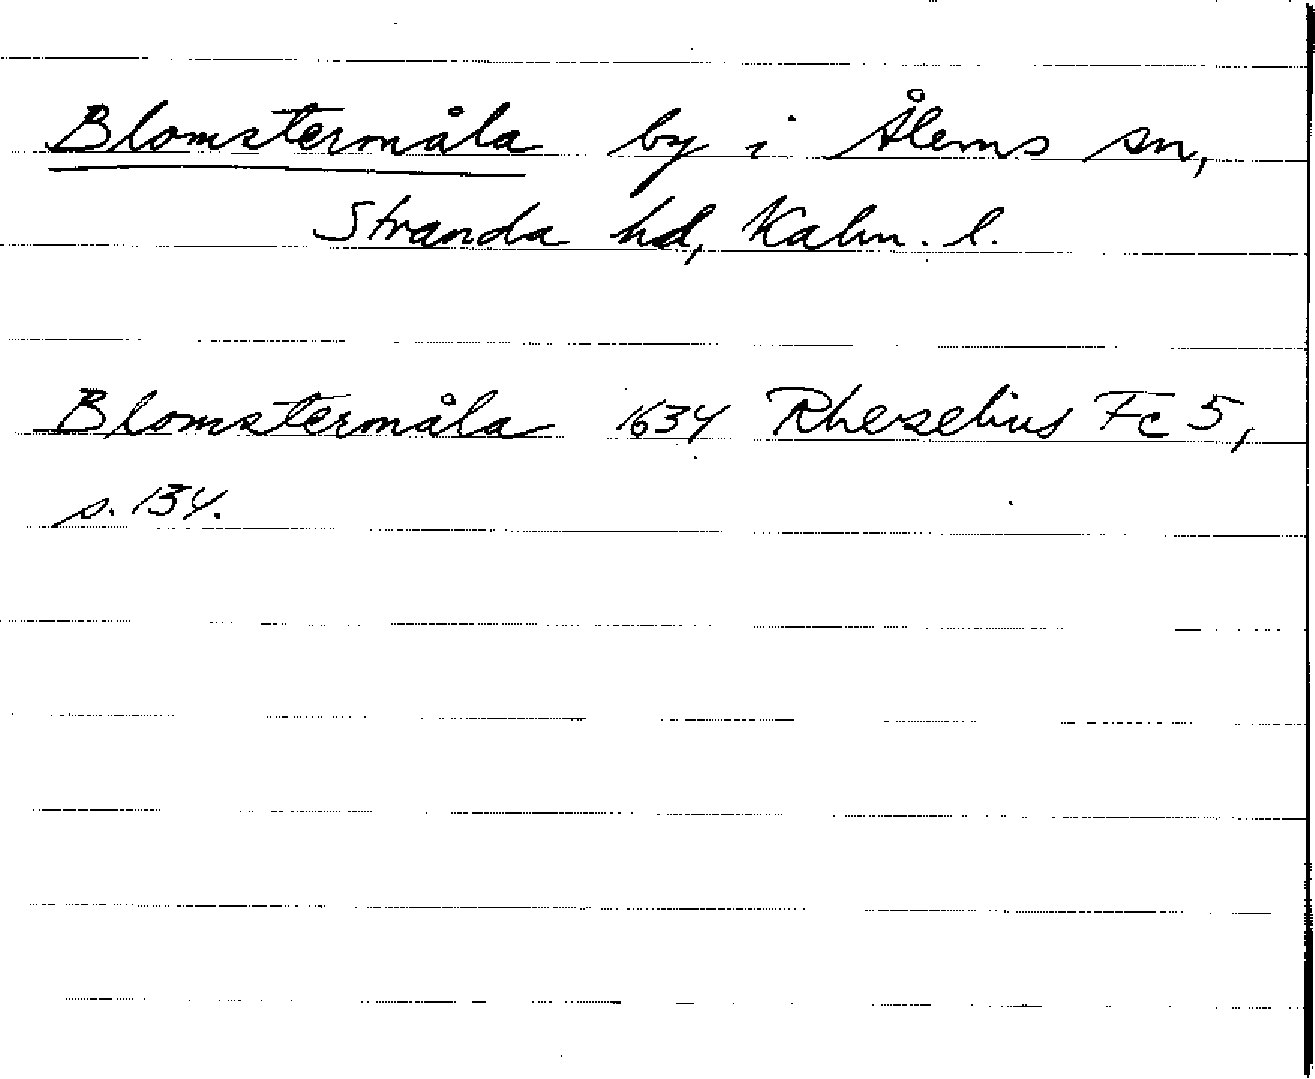 Blomstermåla by i Ålems sn,
Stranda hd, Kalm. l.
Blomstermåla 1634 Rhezelius Fc 5,
s. 134.